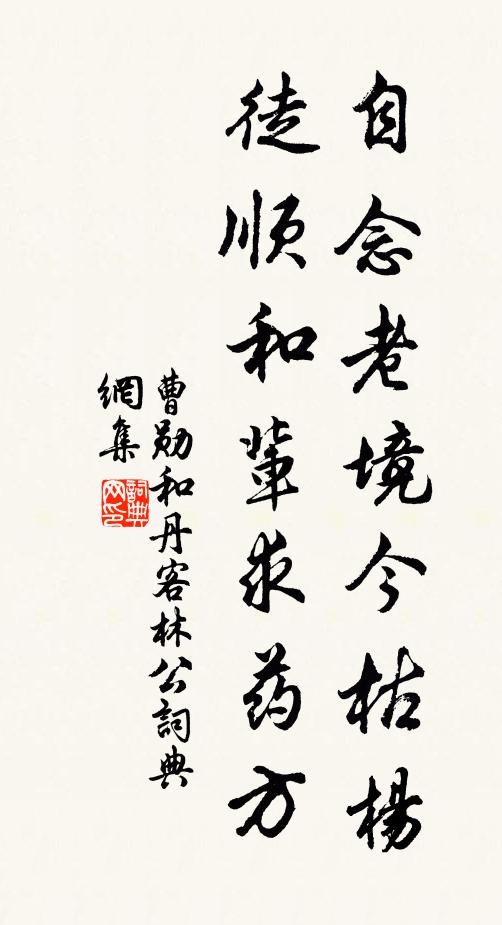 自念老境今枯楊
徒顺和輩求药方
曹勋和丹客林公詞典
網集
詞典網印